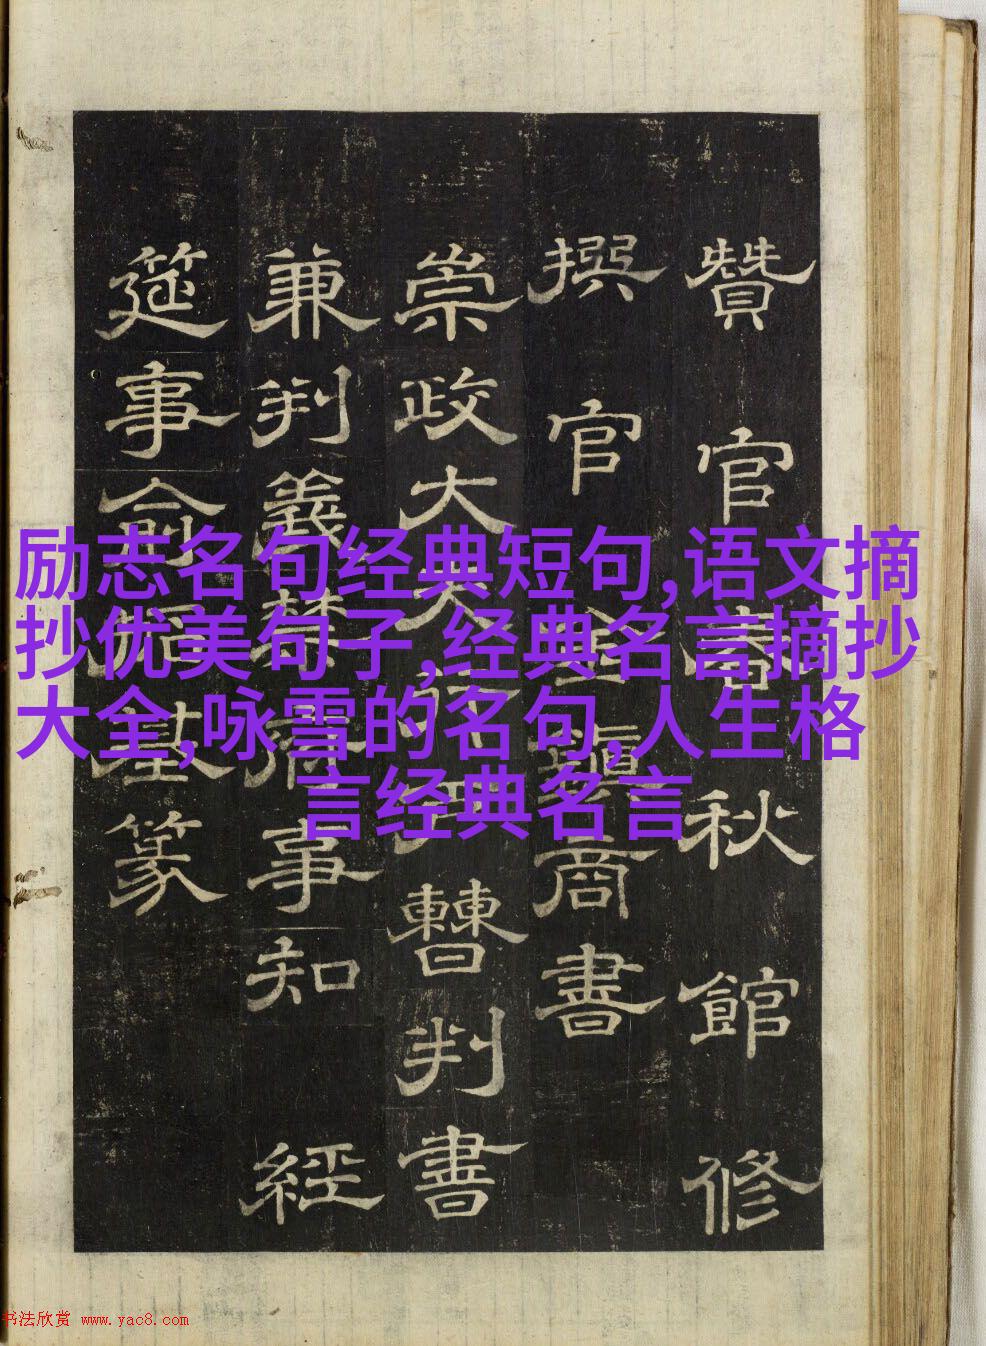 贊官秋館修
撰官商書
崇政大夫行曹判書
兼判義禁府事知經
筵事俞基篆
励志名句经典短句,语文摘
抄优美句子,经典名言摘抄
大全,咏雪的名句,人生格
言经典名言
书法欣赏 www.yac8.com